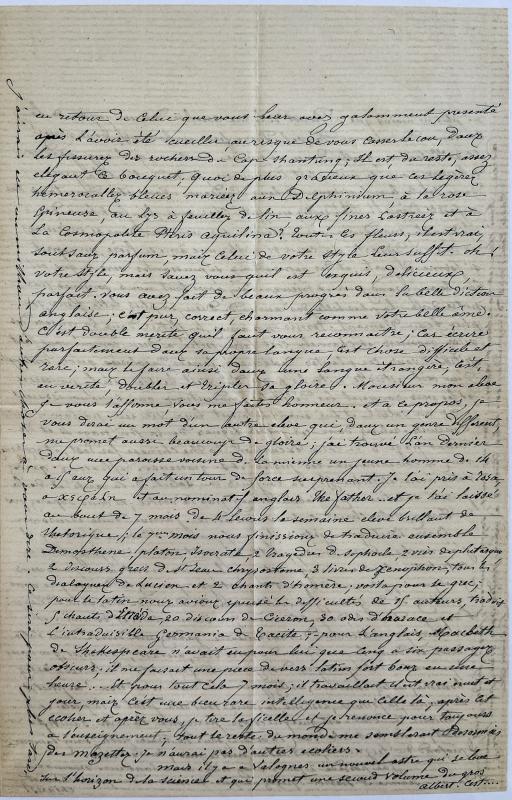 en retour de celui que vous leur avez galamment presenté
après l'avoir été cueillir au risque de vous casser le cou, dans
les fissures des rochers du Cap Shantung; il est du reste, assez
elegant ce bouquet, quoi de plus gracieux que ces legères
hemerocalles bleues mariées au Delphinium, à la rose
épineuse, au Lys à feuilles de lin aux fines Lastrées et à
la Cosmopolite Pteris aquilina? toutes ces fleurs, il est vrai,
sont sans parfum, mais celui de votre style leur suffit. oh!
votre style, mais savez vous qu'il est exquis, délicieux,
parfait. vous avez fait de beaux progrès dans la belle diction
anglaise; c'est pur, correct, charmant comme votre belle âme.
c'est double merite qu'il faut vous reconnaitre; car écrire
parfaitement dans sa propre langue, c'est chose difficile et
rare; mais le faire ainsi dans une langue étrangère, c'est,
en verité, doubler et tripler sa gloire. Monsieur mon élève
je vous l'affirme, vous me faites honneur. et à ce propos, je
vous dirai un mot d'un autre éleve qui, dans un genre different,
me promet aussi beaucoup de gloire; j'ai trouvé l'an dernier
dans une paroisse voisine de la mienne un jeune homme de 14
à 15 ans qui a fait un tour de force surprenant. je l'ai pris à rosa,
à et au nominatif anglais the father. et je l'ai laissé
au bout de 7 mois de 4 leçons la semaine élevé brillant de
rhetorique; le 7me mois nous finissions de traduire ensemble
Demosthène, platon, Isocrate, 2 tragedies de Sophocle,
2 discours grecs de St Jean Chrysostome, 3 livres de Xenophon, tous les
dialogues de Lucien et 2 chants d'homère, voilà pour le grec;
pour le latin nous avions épuisé les difficultés de 15 auteurs, traduit
5 chants d'Enéide, 20 discours de Ciceron, 30 odes d'horace et
l'intraduisible Germania de Tacite; pour l'anglais, Macbeth
de Shakespeare n'avait eu pour lui que cinq à six passages
obscurs; il ne faisait une piece de vers latins fort bons en une
heure. Et pour tout cela 7 mois; il travaillait il est vrai nuit et
jour, mais c'est une bien rare intelligence que celle là; après cet
écolier et après vous, je tire la ficelle et je renonce pour toujours
à l'enseignement; tout le reste du monde me semblerait désormais
des mazettes. je n'aurai pas d'autres écoliers.
mais il y a à Valognes un nouvel astre qui se lève
sur l'horizon de la science et qui promet une second volume du gros
albert. c'est....
J'aurai